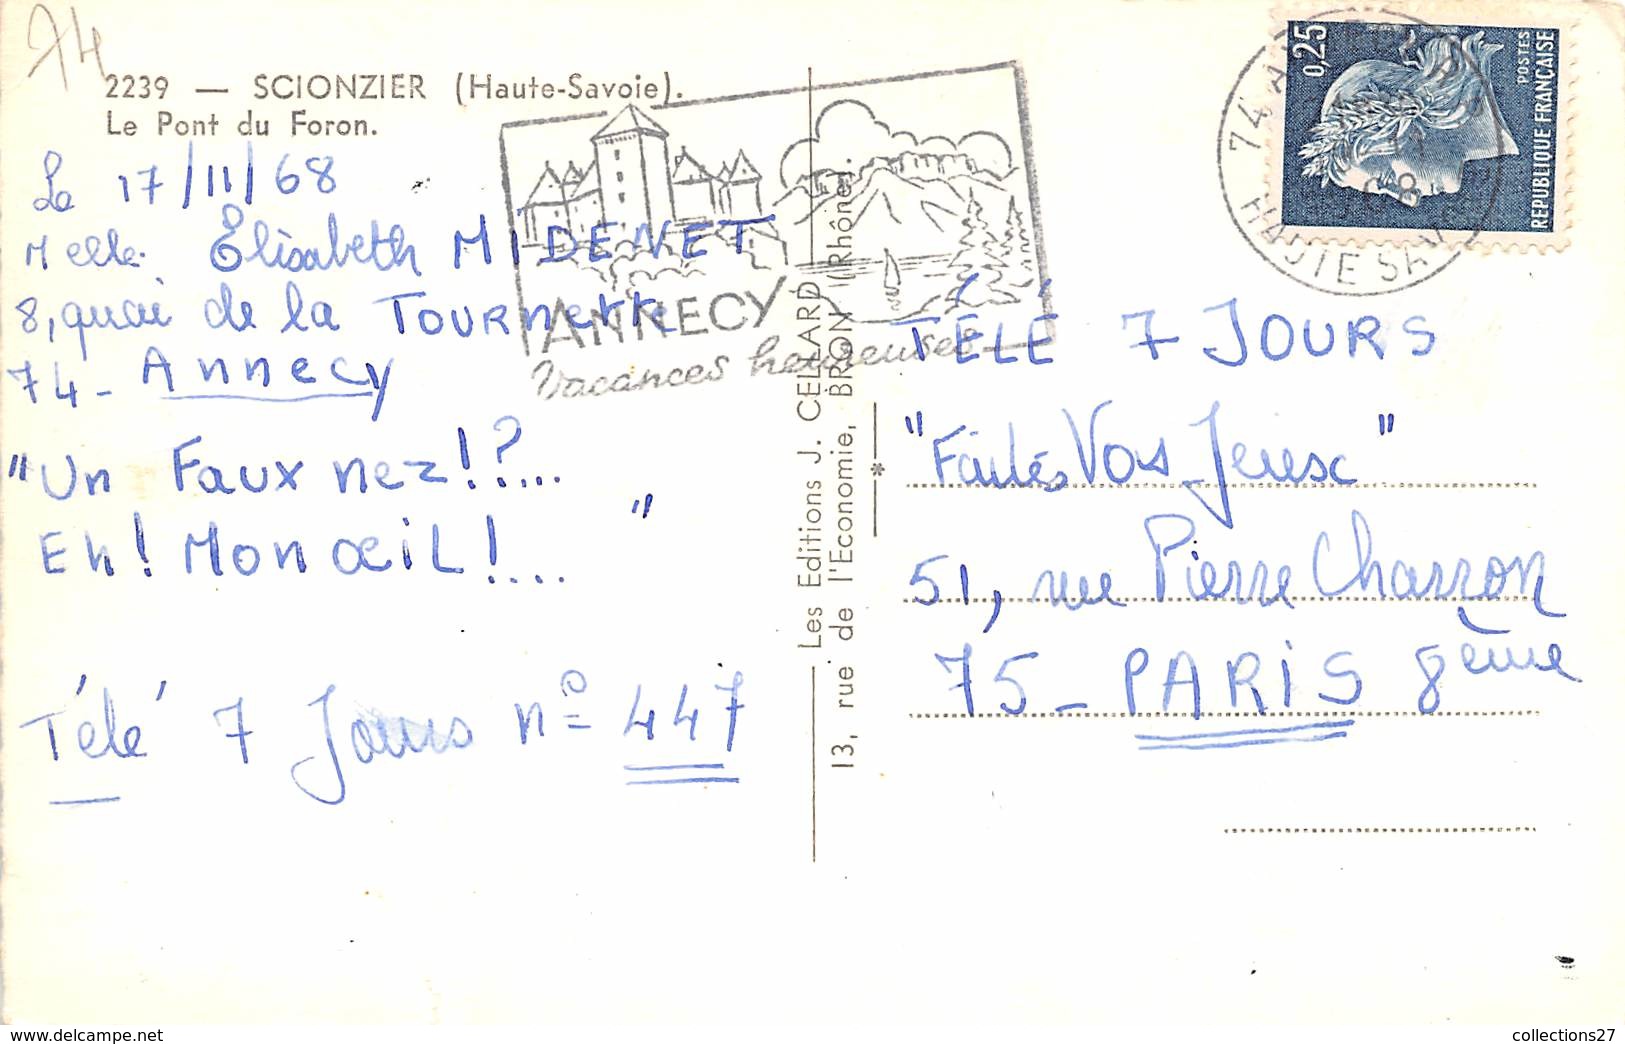 74
2239 — SCIONZIER (Haute-Savoie).
Le Pont du Foron.
Le 17/11/68
Melle Elisabeth MIDENET
8, quai de la TOURnette
74 - Annecy
"Un Faux nez!?...
Eh! Mon œiL!... "
Télé 7 Jours n° 447
ANNECY
Vacances heureuses
Les Editions J. CELLARD
13, rue de l'Economie, BRON (Rhône).
*
0,25
POSTES
REPUBLIQUE FRANÇAISE
74
HAUTE SAVOIE
TÉLÉ 7 JOURS
"Faites Vos Jeux"
51, rue Pierre Charron
75 - PARIS 8ème
collections27